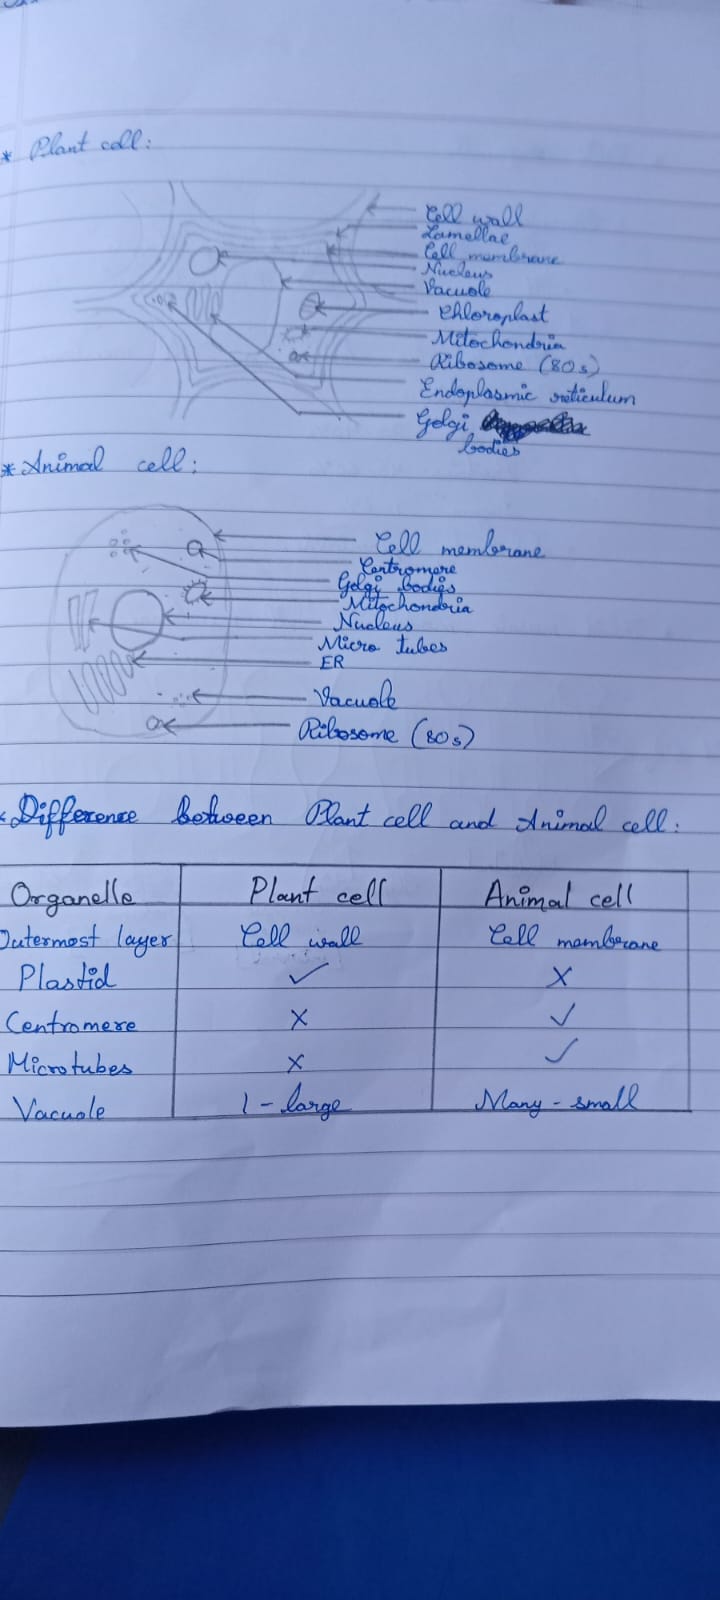 * Plant cell:
Cell wall
Lamellae
Cell membrane
Nucleus
Vacuole
Chloroplast
Mitochondria
Ribosome (80s)
Endoplasmic reticulum
Golgi
bodies
* Animal cell:
Cell membrane
Centromere
Golgi bodies
Mitochondria
Nucleus
Micro tubes
ER
Vacuole
Ribosome (80s)
Difference between Plant cell and Animal cell:
Organelle Plant cell Animal cell
Outermost layer Cell wall Cell membrane
Plastid ✓ X
Centromere X ✓
Microtubes X ✓
Vacuole 1 - large Many - small